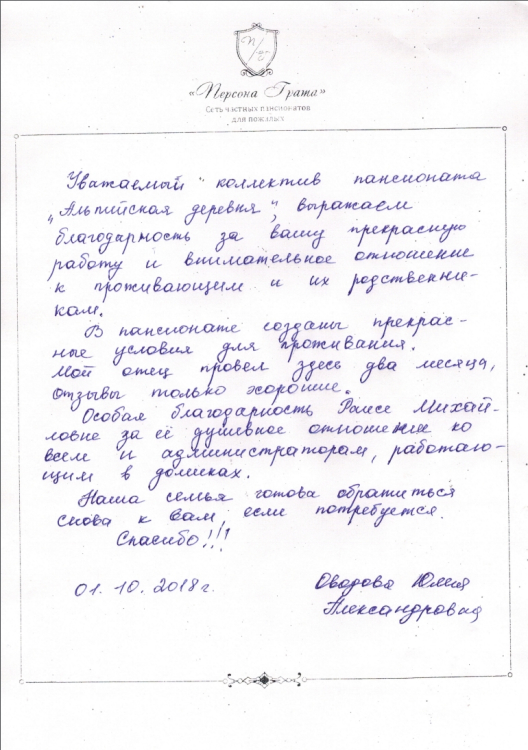 П/Г
«Персона Грата»
Сеть частных пансионатов
для пожилых
Уважаемый коллектив пансионата
„Альпийская деревня", выражаем
благодарность за вашу прекрасную
работу и внимательное отношение
к проживающим и их родственни-
кам.
В пансионате созданы прекрас-
ные условия для проживания.
Мой отец провел здесь два месяца,
отзывы только хорошие.
Особая благодарность Раисе Михай-
ловне за её душевное отношение ко
всем и администраторам, работаю-
щим в домиках.
Наша семья готова обратиться
снова к вам, если потребуется.
Спасибо!!!
01.10.2018г.
Оводова Юлия
Александровна